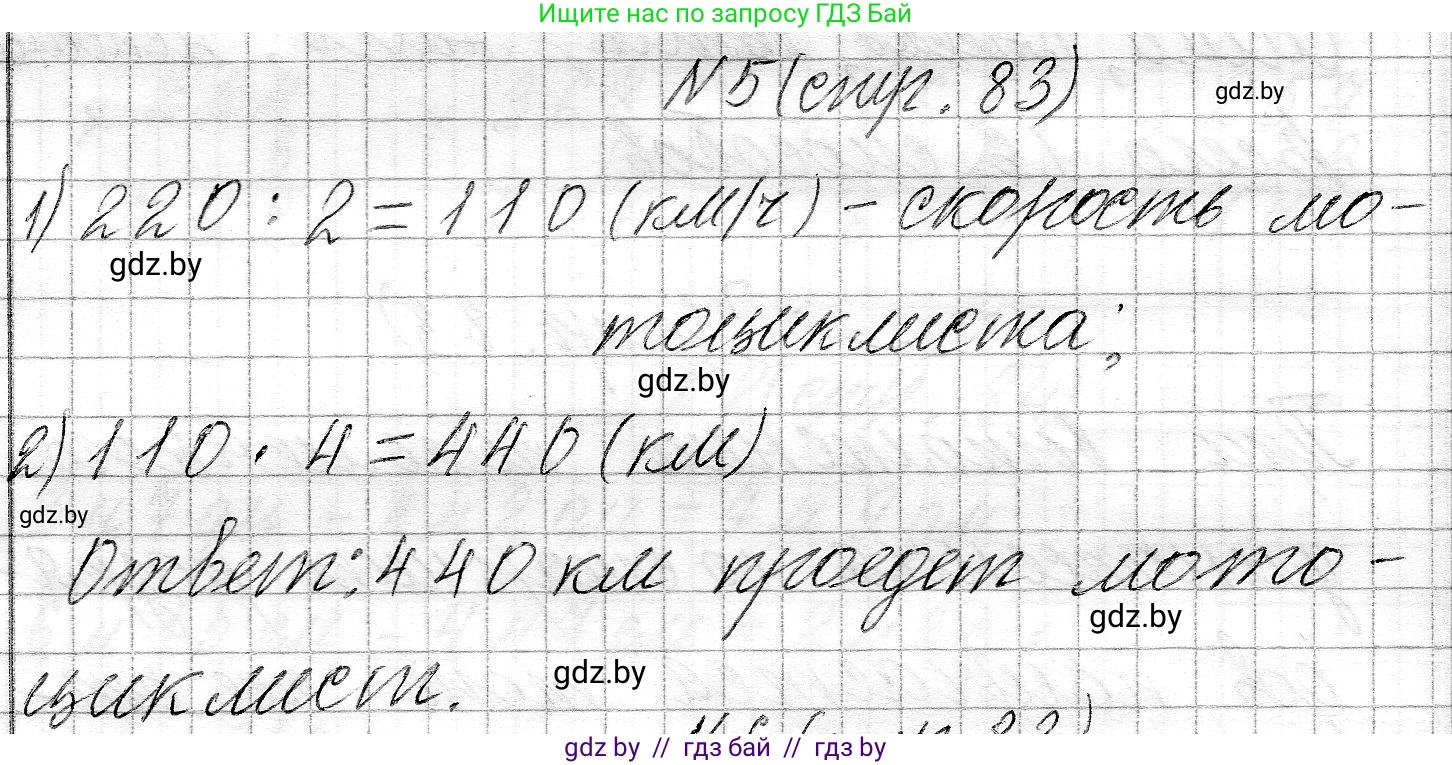 Ищите нас по запросу ГДЗ Бай
N5 (стр. 83)
gdz.by
1) 220 : 2 = 110 (км/ч) - скорость мо-
gdz.by
тоциклиста;
gdz.by
2) 110 · 4 = 440 (км)
gdz.by
Ответ: 440 км проедет мото-
gdz.by
циклист.
gdz.by
gdz by // гдз бай // гдз by